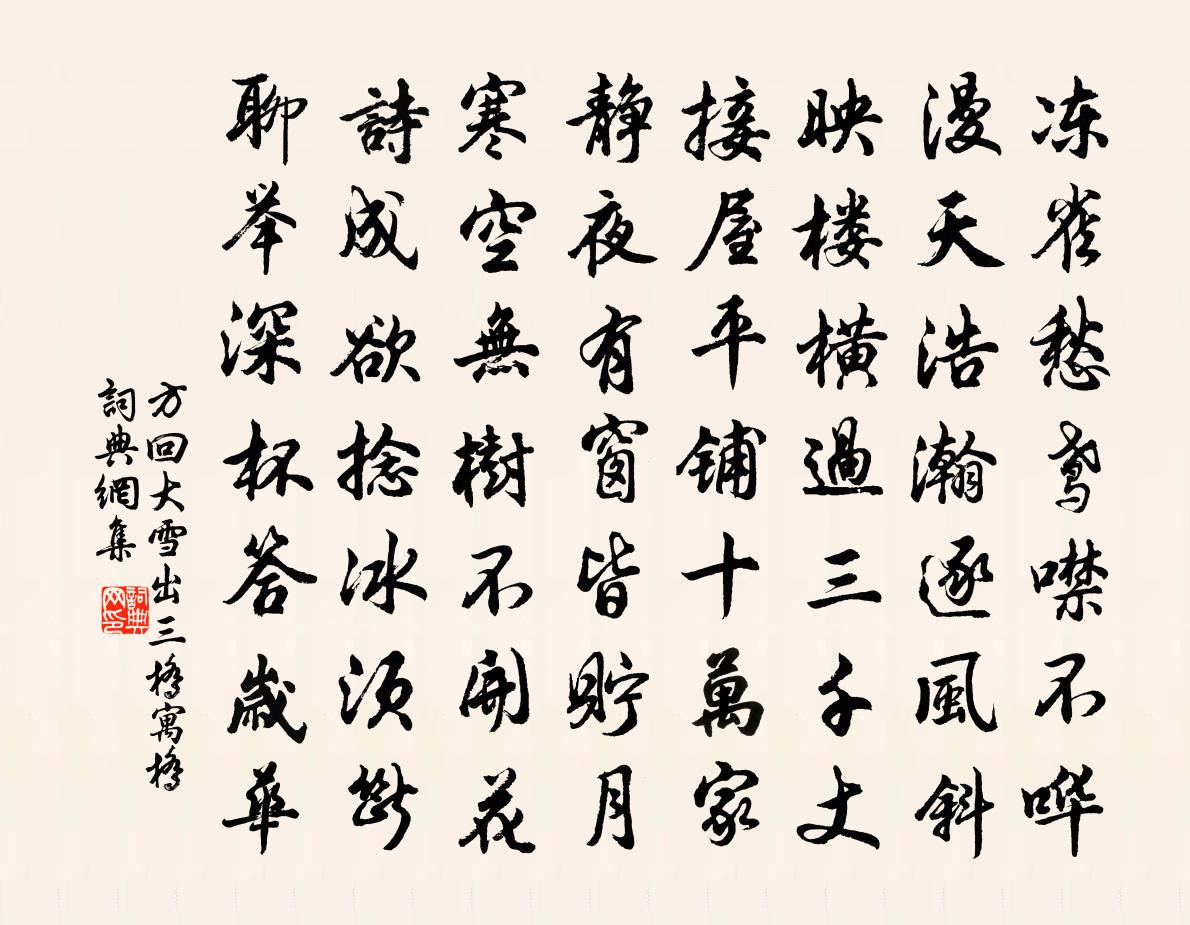 冻雀愁鸢噤不哗
漫天浩瀚逐風斜
映楼横過三千丈
接屋平铺十萬家
静夜有窗皆貯月
寒空無樹不開花
詩成欲捻冰须斷
聊举深杯答歲華
方回大雪出三橋寓橋
詞典網集
詞典网印